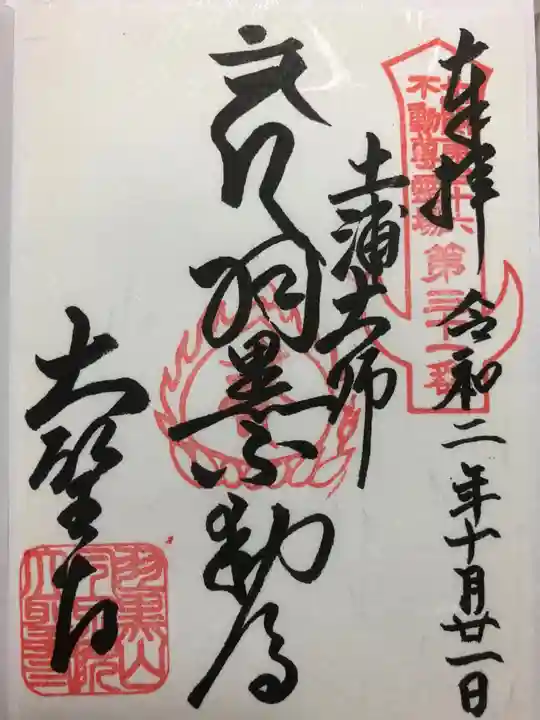 奉拝
令和二年十月廿一日
不動尊霊場
十六
第三十一番
土浦大師
羽黒不動尊
大聖寺
羽黒山